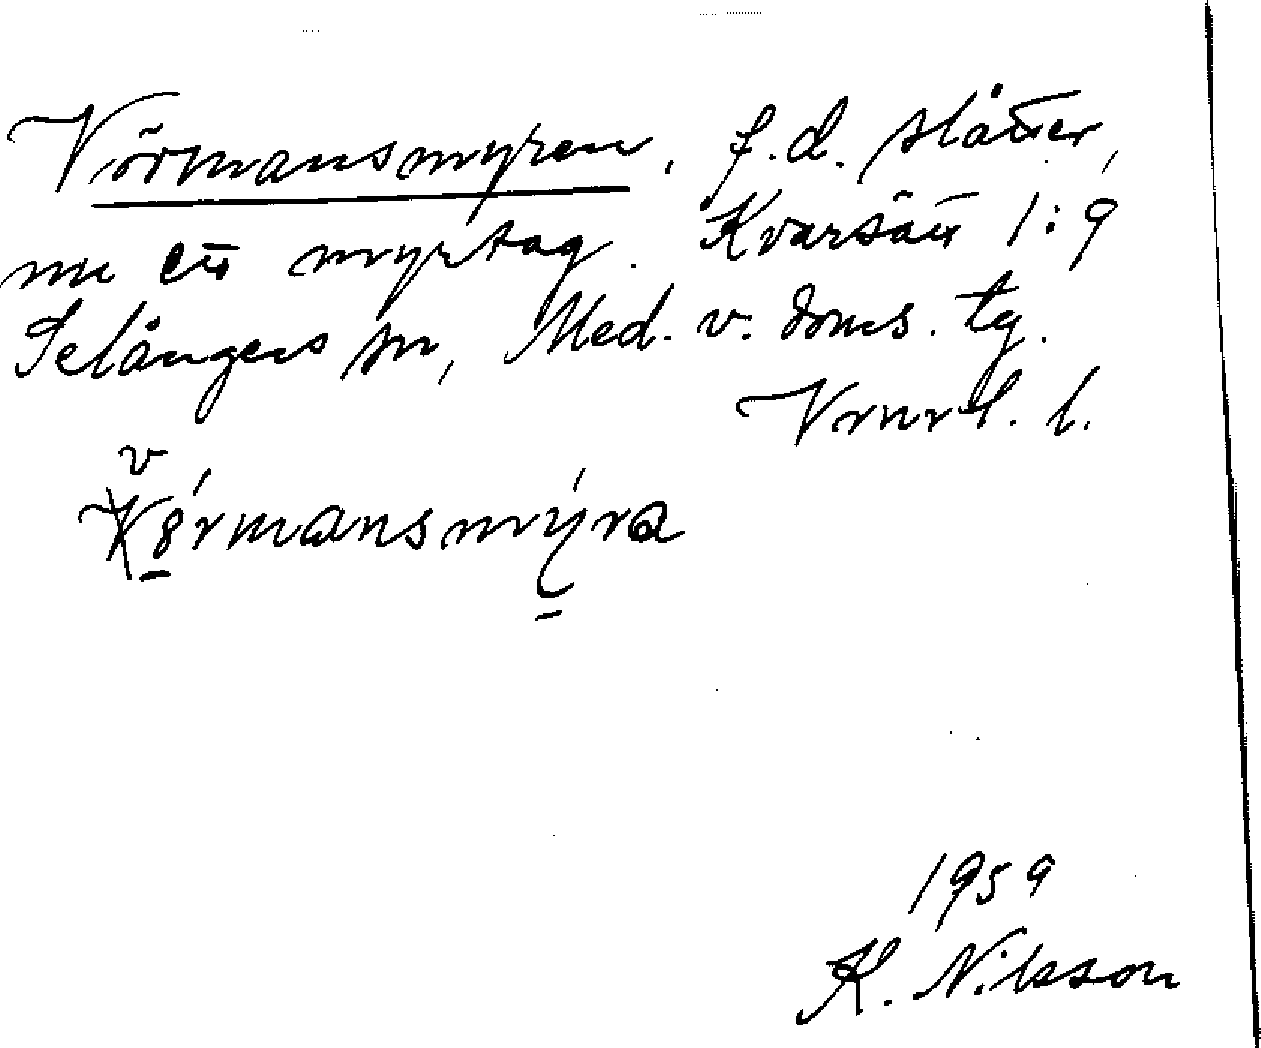 Vörmansmyren, f.d. slåtter,
nu ett myrtag. Kvarsätt 1:9
Selångers sn, Med. v. doms. tg.
Vrnrl. l.
v
Körmansmýra
1959
K. Nilsson